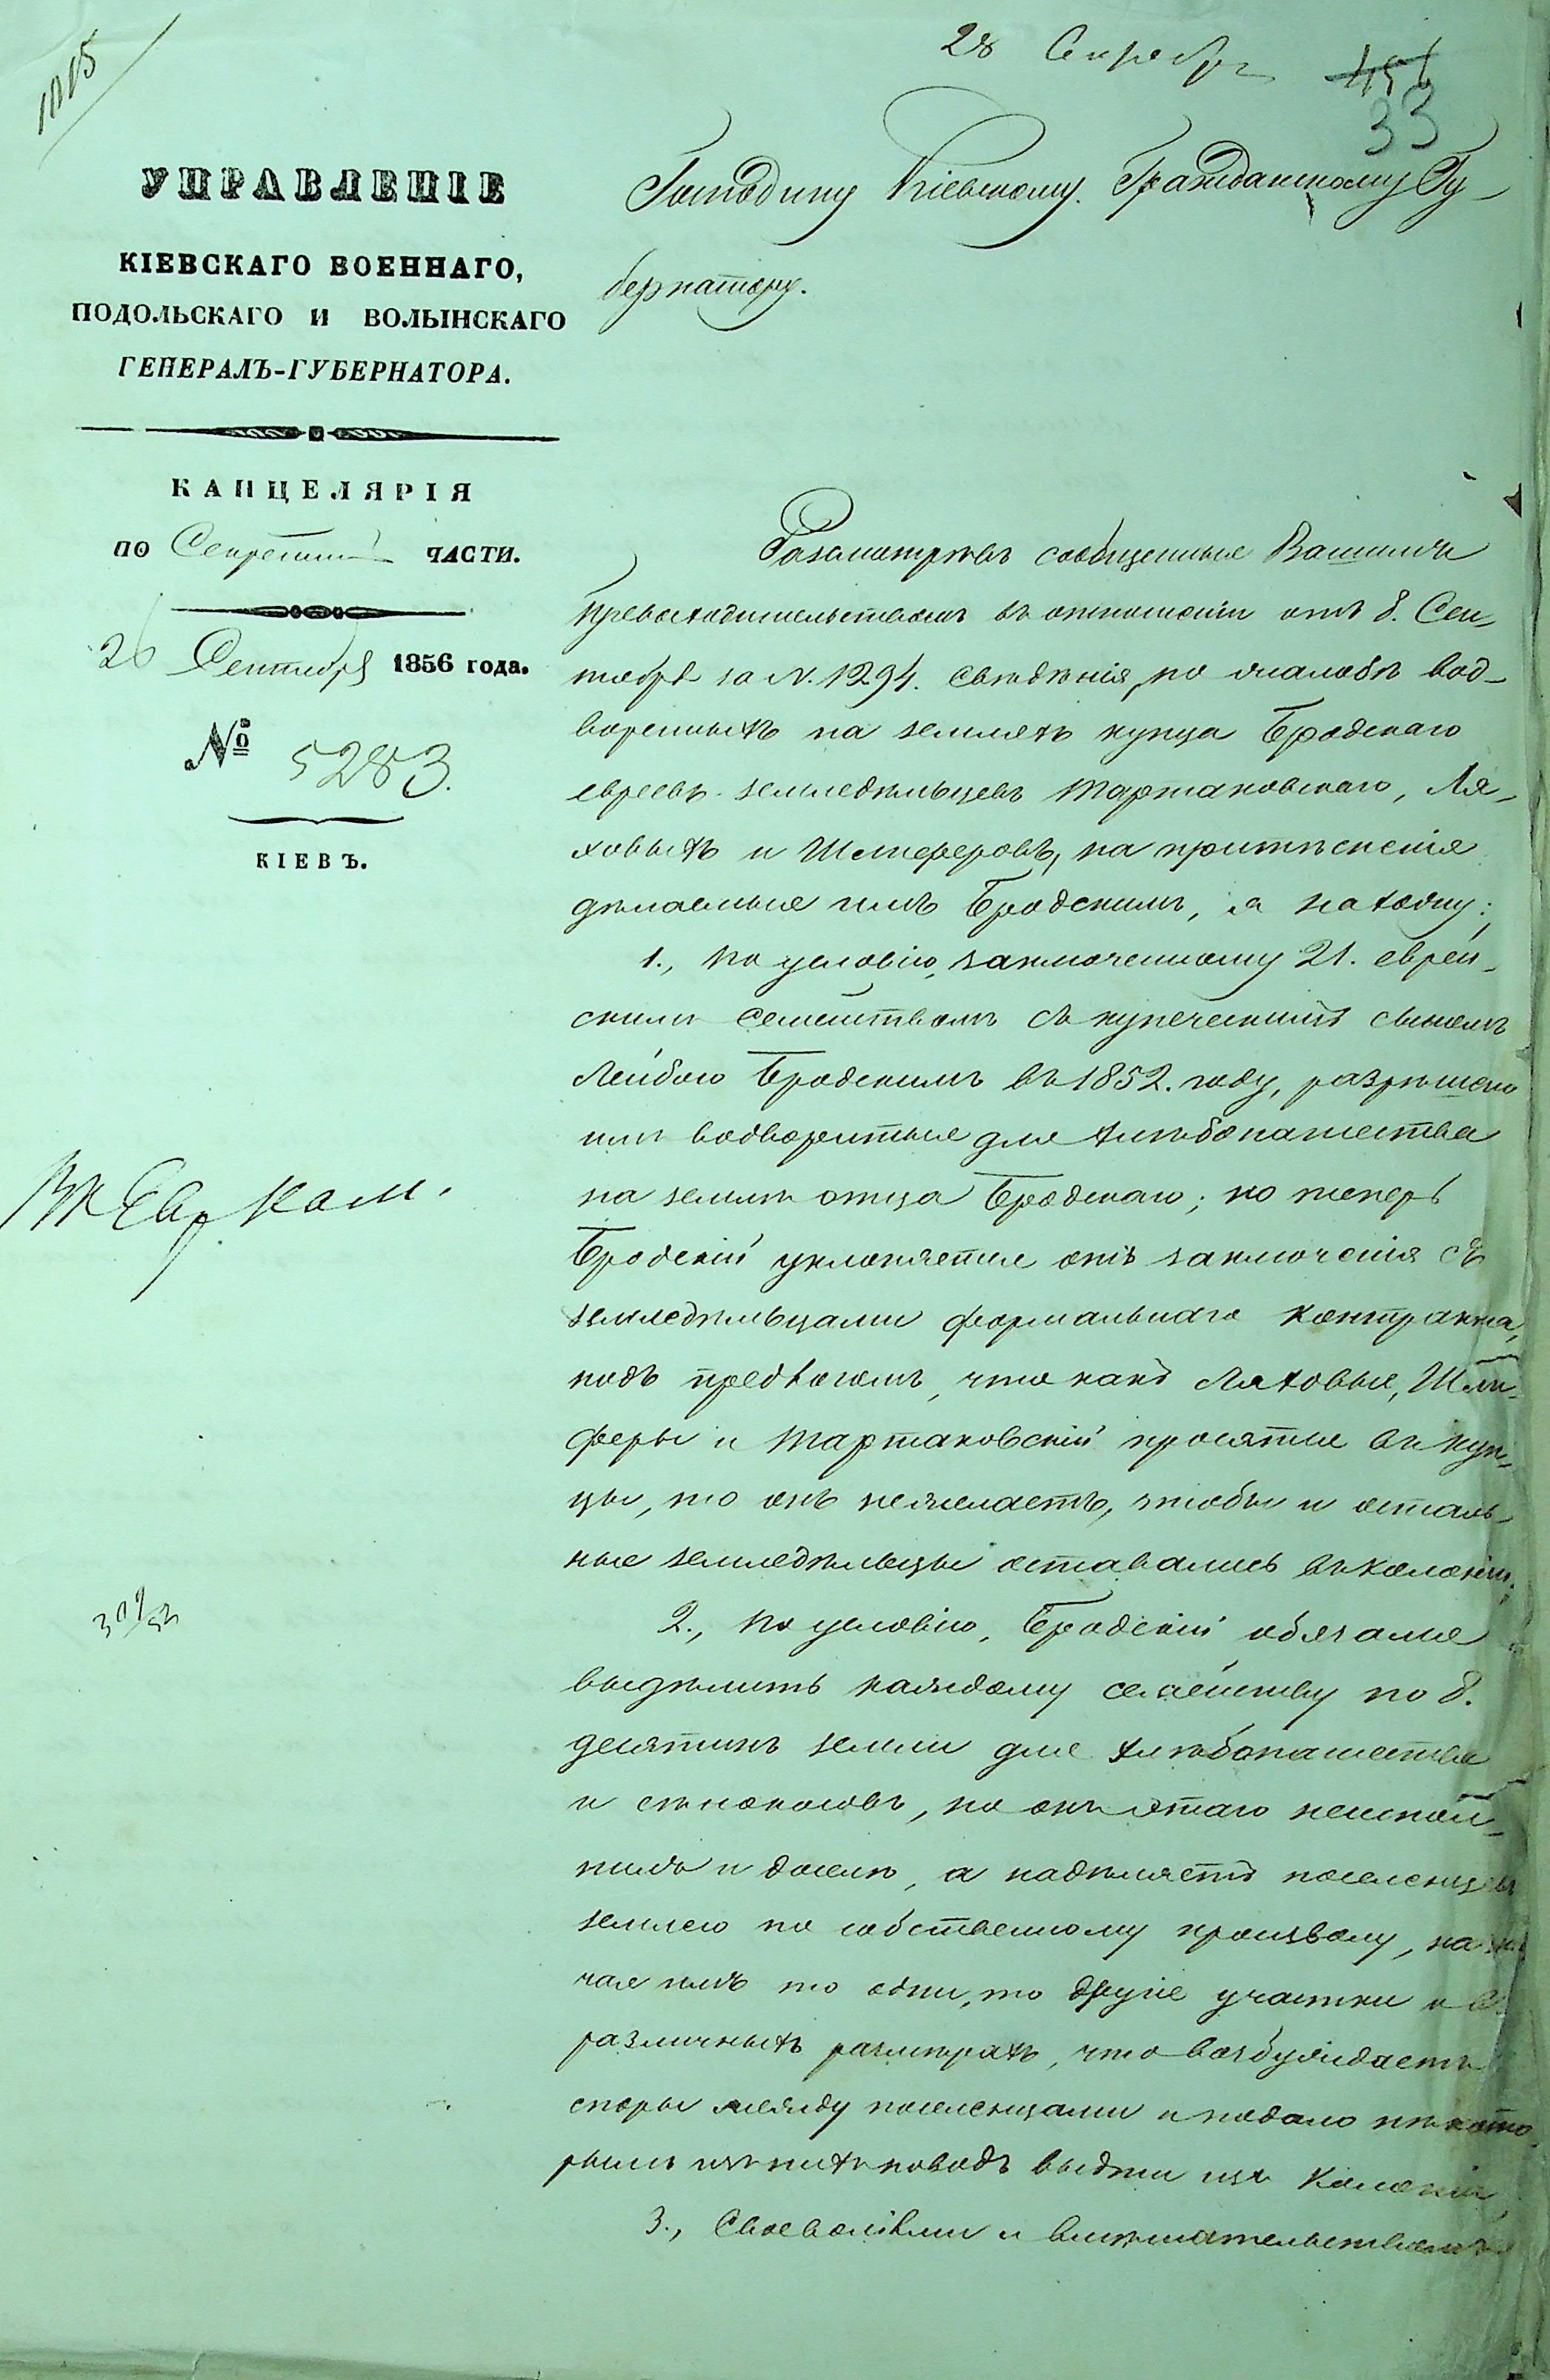 1015
28 Сентября
451
33
УПРАВЛЕНІЕ
КІЕВСКАГО ВОЕННАГО,
ПОДОЛЬСКАГО И ВОЛЫНСКАГО
ГЕНЕРАЛЪ-ГУБЕРНАТОРА.
КАНЦЕЛЯРІЯ
ПО Секретной ЧАСТИ.
26 Сентября 1856 года.
№ 5283.
КІЕВЪ.
Господину Кіевскому Гражданскому Гу-
бернатору.
Разсмотрѣвъ сообщенные Вашимъ
Превосходительствомъ въ отношеніи отъ 8. Сен-
тября за N. 1294. свѣдѣнія, по жалобѣ вод-
воренныхъ на земляхъ купца Бродскаго
евреевъ-земледѣльцевъ Тартаковскаго, Ля-
ховыхъ и Шлиферовъ, на притѣсненія
дѣлаемые имъ Бродскимъ, я нахожу:
1., По условію, заключенному 21. еврей-
скимъ семействомъ съ купеческимъ сыномъ
Лейбою Бродскимъ въ 1852. году, разрѣшено
имъ водвориться для хлѣбопашества
на земли отца Бродскаго; но теперь
Бродскій уклоняется отъ заключенія съ
земледѣльцами формальнаго контракта,
подъ предлогомъ, что какъ Ляховые, Шли-
феры и Тартаковскій просятся въ куп-
цы, то онъ нежелаетъ, чтобы и осталь-
ные земледѣльцы оставались въ колоніи;
2., По условію, Бродскій обязался
выдѣлить каждому семейству по 8.
десятинъ земли для хлѣбопашества
и сѣнокосовъ, но онъ этаго неиспол-
нилъ и доселѣ, а надѣляетъ поселенцевъ
землею по собственному произволу, назна
чая имъ то одни, то другіе участки и въ
различныхъ размѣрахъ, что возбуждаетъ
споры между поселенцами и подало нѣкото-
рымъ изъ нихъ поводъ выдти изъ колоніи,
3., Своеволіемъ и вмѣшательствомъ
Въ Евр. Ком.
309/53